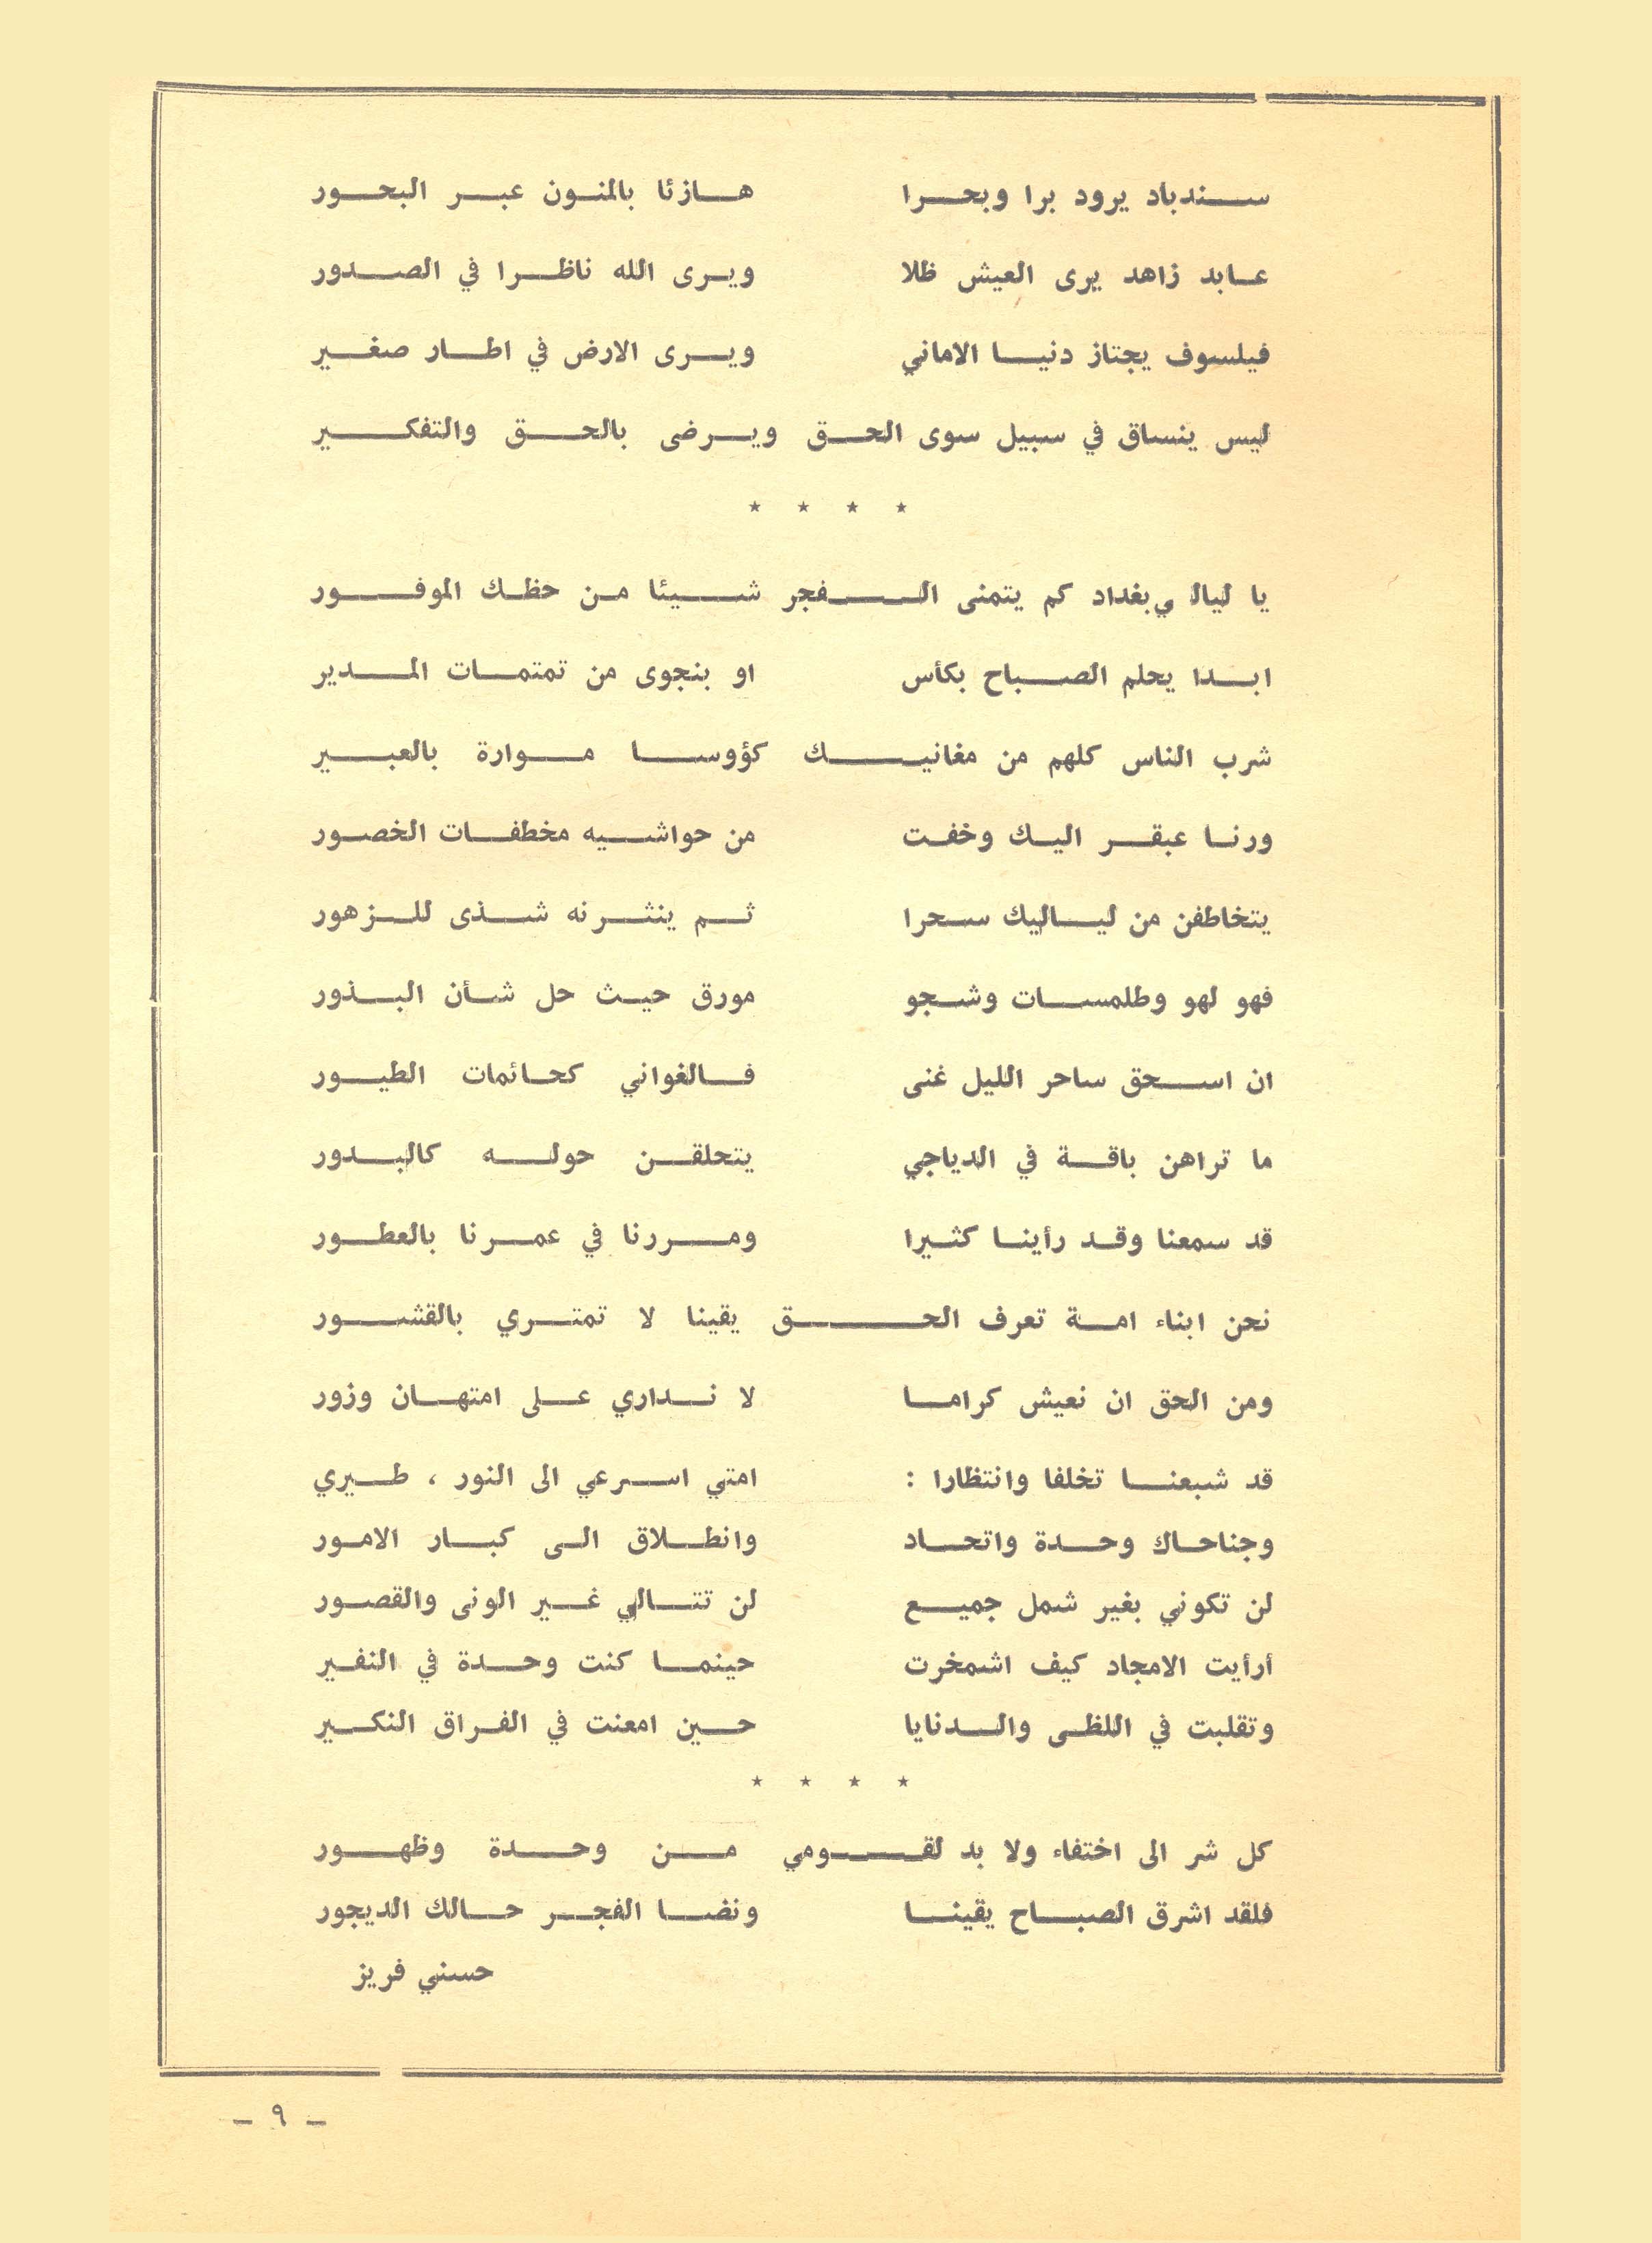 سندباد يرود برا وبحرا هازئا بالمنون عبر البحور
عابد زاهد يرى العيش ظلا ويرى الله ناظرا في الصدور
فيلسوف يجتاز دنيا الاماني ويرى الارض في اطار صغير
ليس ينساق في سبيل سوى الحق ويرضى بالحق والتفكير
* * * *
يا ليالي بغداد كم يتمنى الفجر شيئا من حظك الموفور
ابدا يحلم الصباح بكأس او بنجوى من تمتمات المدير
شرب الناس كلهم من مغانيك كؤوسا موارة بالعبير
ورنا عبقر اليك وخفت من حواشيه مخطفات الخصور
يتخاطفن من لياليك سحرا ثم ينثرنه شذى للزهور
فهو لهو وطلمسات وشجو مورق حيث حل شأن البذور
ان اسحق ساحر الليل غنى فالغواني كحائمات الطيور
ما تراهن باقة في الدياجي يتحلقن حوله كالبدور
قد سمعنا وقد رأينا كثيرا ومررنا في عمرنا بالعطور
نحن ابناء امة تعرف الحق يقينا لا تمتري بالقشور
ومن الحق ان نعيش كراما لا نداري على امتهان وزور
قد شبعنا تخلفا وانتظارا : امتي اسرعي الى النور ، طيري
وجناحاك وحدة واتحاد وانطلاق الى كبار الامور
لن تكوني بغير شمل جميع لن تتالي غير الونى والقصور
أرأيت الامجاد كيف اشمخرت حينما كنت وحدة في النفير
وتقلبت في اللظى والدنايا حين امعنت في الفراق النكير
* * * *
كل شر الى اختفاء ولا بد لقومي من وحدة وظهور
فلقد اشرق الصباح يقينا ونضا الفجر حالك الديجور
حسني فريز
- ٩ -